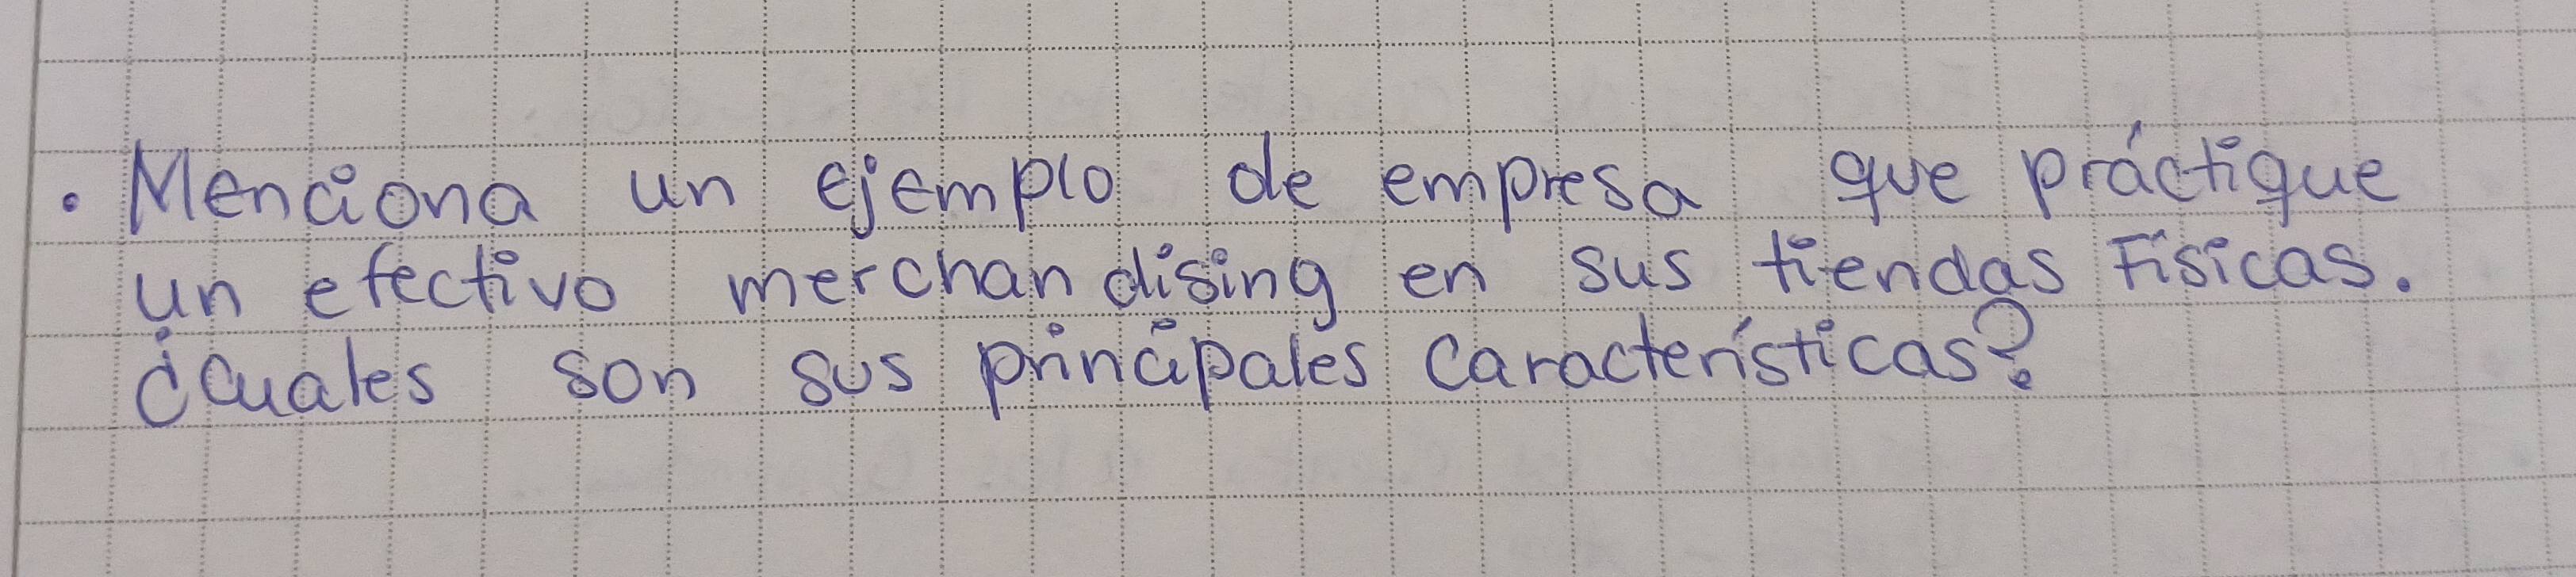 • Menciona un ejemplo de empresa que práctique
un efectivo merchandising en sus tiendas Físicas.
¿Cuales son sus principales características?